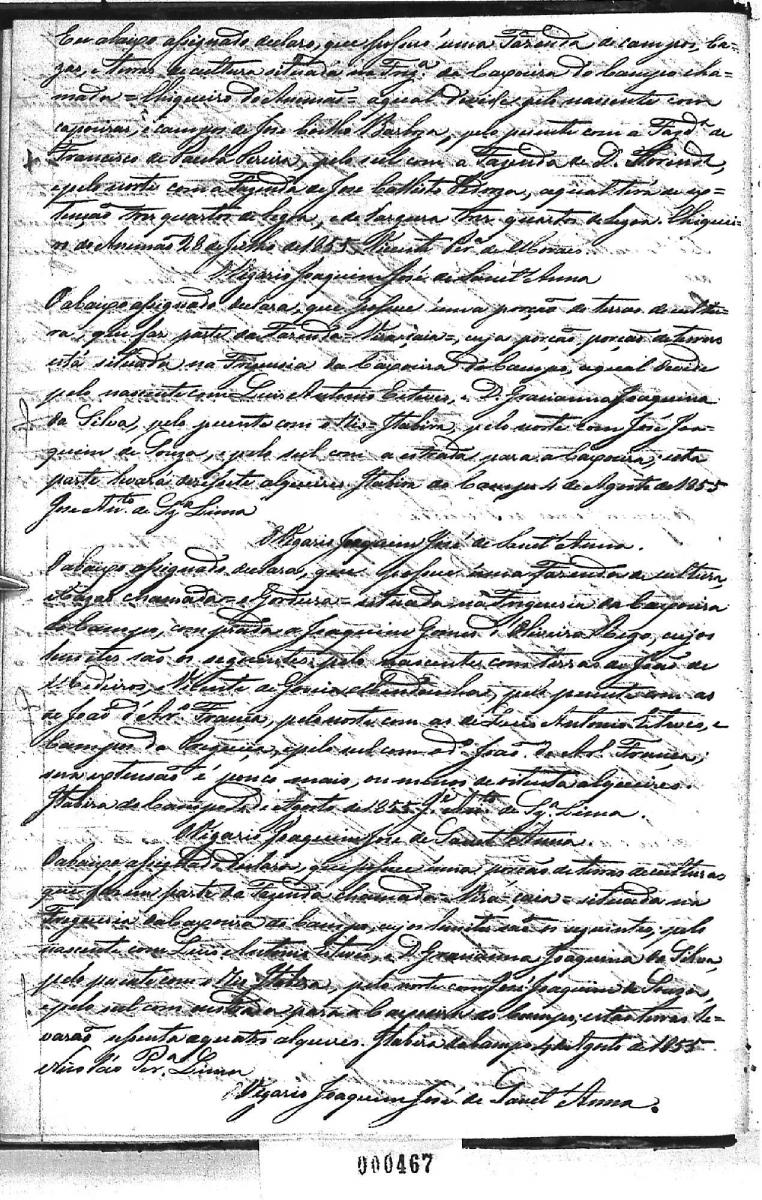 Eu abaixo assignado declaro, que possuo uma Fazenda de campos, ca-
zas, e terras de cultura situada na Frega. da Capoeira do Campo cha-
mada = Chiqueiro do Alemão = a qual divide pelo nascente com
capoeiras, e campos de José Coelho Barboza, pelo poente com a Fazda. de
Francisco de Paula Pereira, pelo sul com a Fazenda de D.
e pelo norte com a Fazenda de José Calisto Pedroza, a qual tem de ex-
tenção tres quartos de legoa, e de largura tres quartos de legoa. Chiquei-
ro do Alemão 28 de Julho de 1855 Vicente Pera. de Moraes.
O Vigario Joaquim José de Sanct Anna
O abaixo assignado declara, que possue uma porção de terras de cultu-
ra, que faz parte da Fazenda = Vira-saia =, cuja porção, porção de terras
está situada na Freguesia da Capoeira do Campo, a qual divide
pelo nascente com Luis Antonio Esteves, e D. Joaquina
da Silva, pelo poente com o Rio = Itabira, pelo norte com José Joa-
quim de Souza, e pelo sul com a estrada para a Capoeira; esta
parte levará alqueires. Itabira do Campo 4 de Agosto de 1855
José Anto. de Sza. Lima
O Vigario Joaquim José de Sanct Anna.
O abaixo assignado declara, que possue uma Fazenda de cultura,
chamada = = situada na Freguesia da Capoeira
do Campo, comprada a Joaquim Gomes d'Oliveira cujos
limites são os seguintes: pelo nascente com terras de João de
Medeiros, e Vicente de pelo poente com as
de João d'Ao. Franca, pelo norte com as de Luis Antonio Esteves, e
Campos da e pelo sul com o do. João de Ao. Franca;
sua extensão é pouco mais, ou menos de oitenta alqueires.
Itabira do Campo 4 d'Agosto de 1855 Je. Anto. de Sza. Lima.
O Vigario Joaquim José de Sanct Anna.
O abaixo assignado declara, que possue uma porção de terras de culturas
que fazem parte da Fazenda chamada = Vira-saia = situada na
Freguesia da Capoeira do Campo, cujos limites são os seguintes, pelo
nascente com Luis Antonio Esteves, e D. Joaquina da Silva,
pelo poente com o Rio Itabira, pelo norte com José Joaquim de Souza,
e pelo sul com a estrada para a Capoeira do Campo; estas terras le-
varão sessenta a quatro alqueires. Itabira do Campo 4 de Agosto de 1855
Pera. Lima
O Vigario Joaquim José de Sanct Anna.
000467